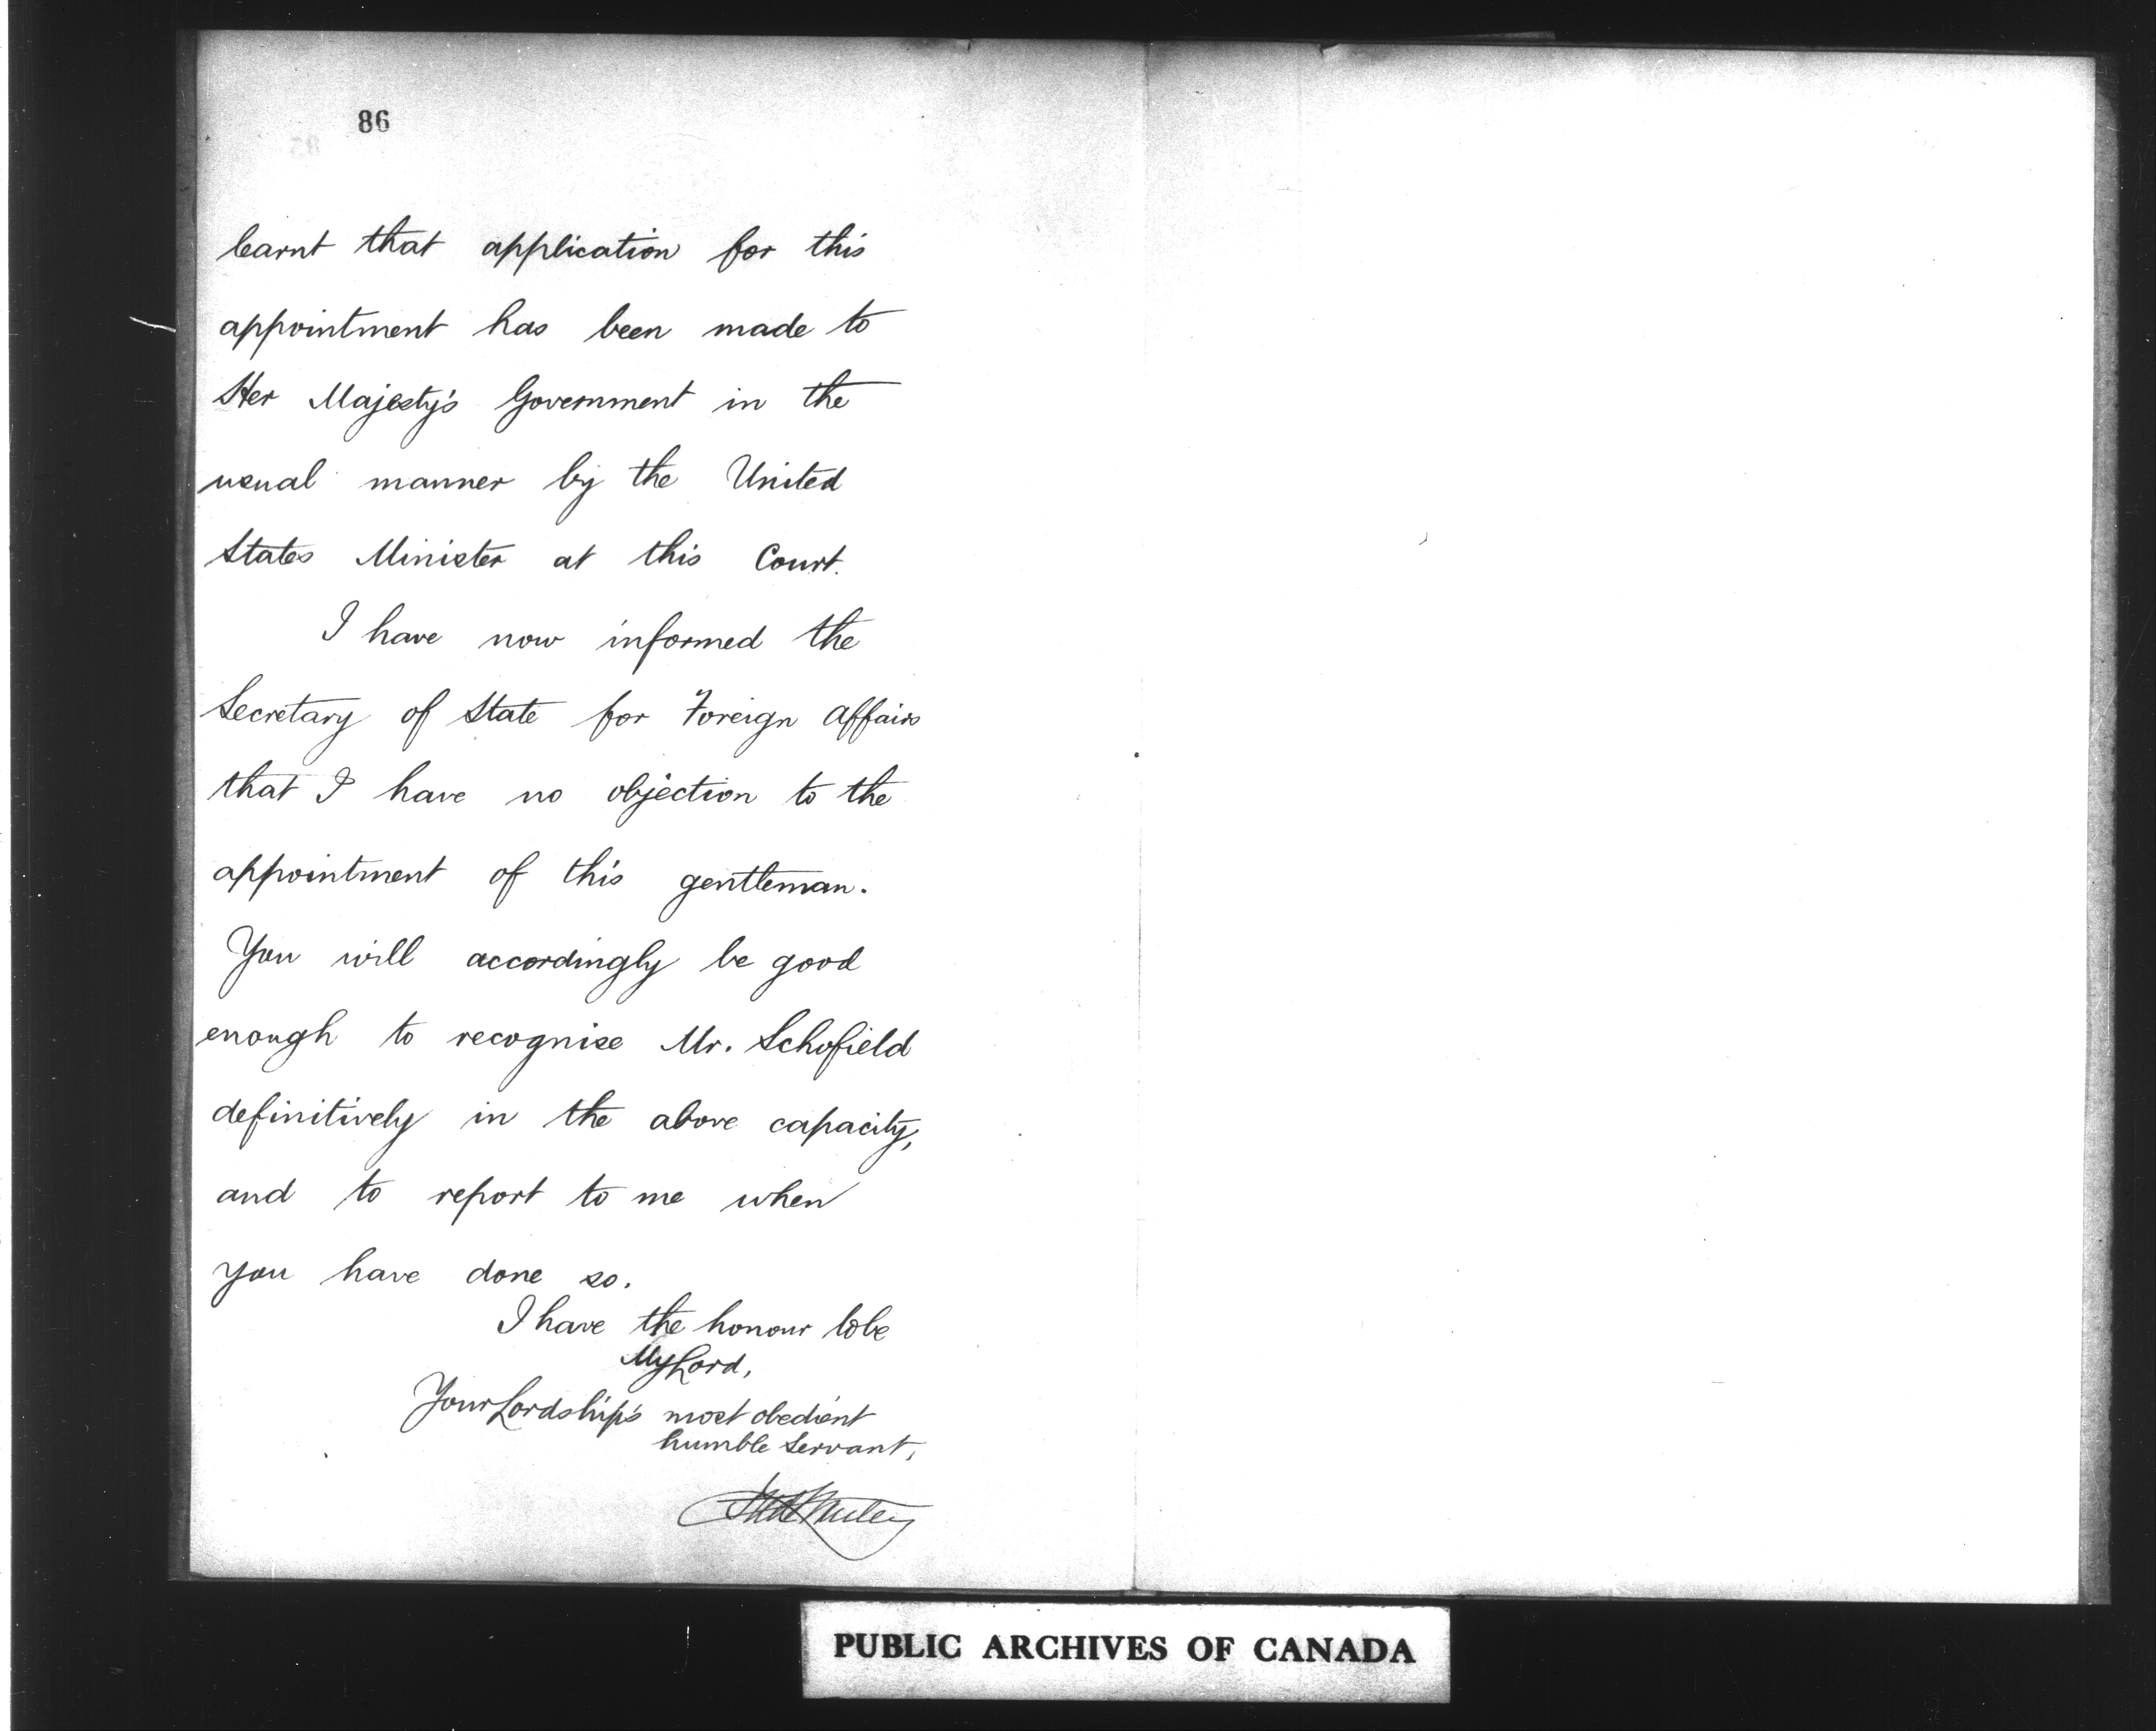 86
learnt that application for this
appointment has been made to
Her Majesty's Government in the
usual manner by the United
States Minister at this Court.
I have now informed the
Secretary of State for Foreign Affairs
that I have no objection to the
appointment of this gentleman.
You will accordingly be good
enough to recognise Mr. Schofield
definitively in the above capacity,
and to report to me when
you have done so.
I have the honour to be
My Lord,
Your Lordship's most obedient
humble Servant,
PUBLIC ARCHIVES OF CANADA